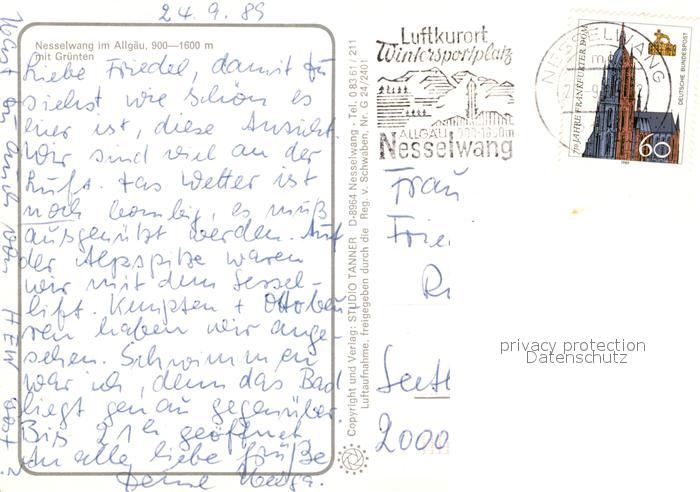 24.9.89
Nesselwang im Allgäu, 900—1600 m
mit Grünten
Liebe Friedel, damit Du
siehst wie schön es
hier ist diese Ansicht.
Wir sind viel an der
Luft. das Wetter ist
noch bombig, es muß
ausgenützt werden. Auf
der Alpspitze waren
wir mit dem Sessel-
lift. Kempten + Ottobeu
ren haben wir ange-
sehen. Schwimmen
war ich, denn das Bad
liegt genau gegenüber.
Bis 21h geöffnet
An alle liebe Grüße
Deine Helga.
Hast Du Dich von HEW
Copyright und Verlag: STUDIO TANNER D-8964 Nesselwang · Tel. 0 83 61 / 211
Luftaufnahme, freigegeben durch die Reg. v. Schwaben, Nr. G 24/2401
Luftkurort
Wintersportplatz
ALLGÄU 900-1600m
Nesselwang
NESSELWANG
750 JAHRE FRANKFURTER DOM
DEUTSCHE BUNDESPOST
60
1989
Frau
Frie
R
2000
privacy protection
Datenschutz